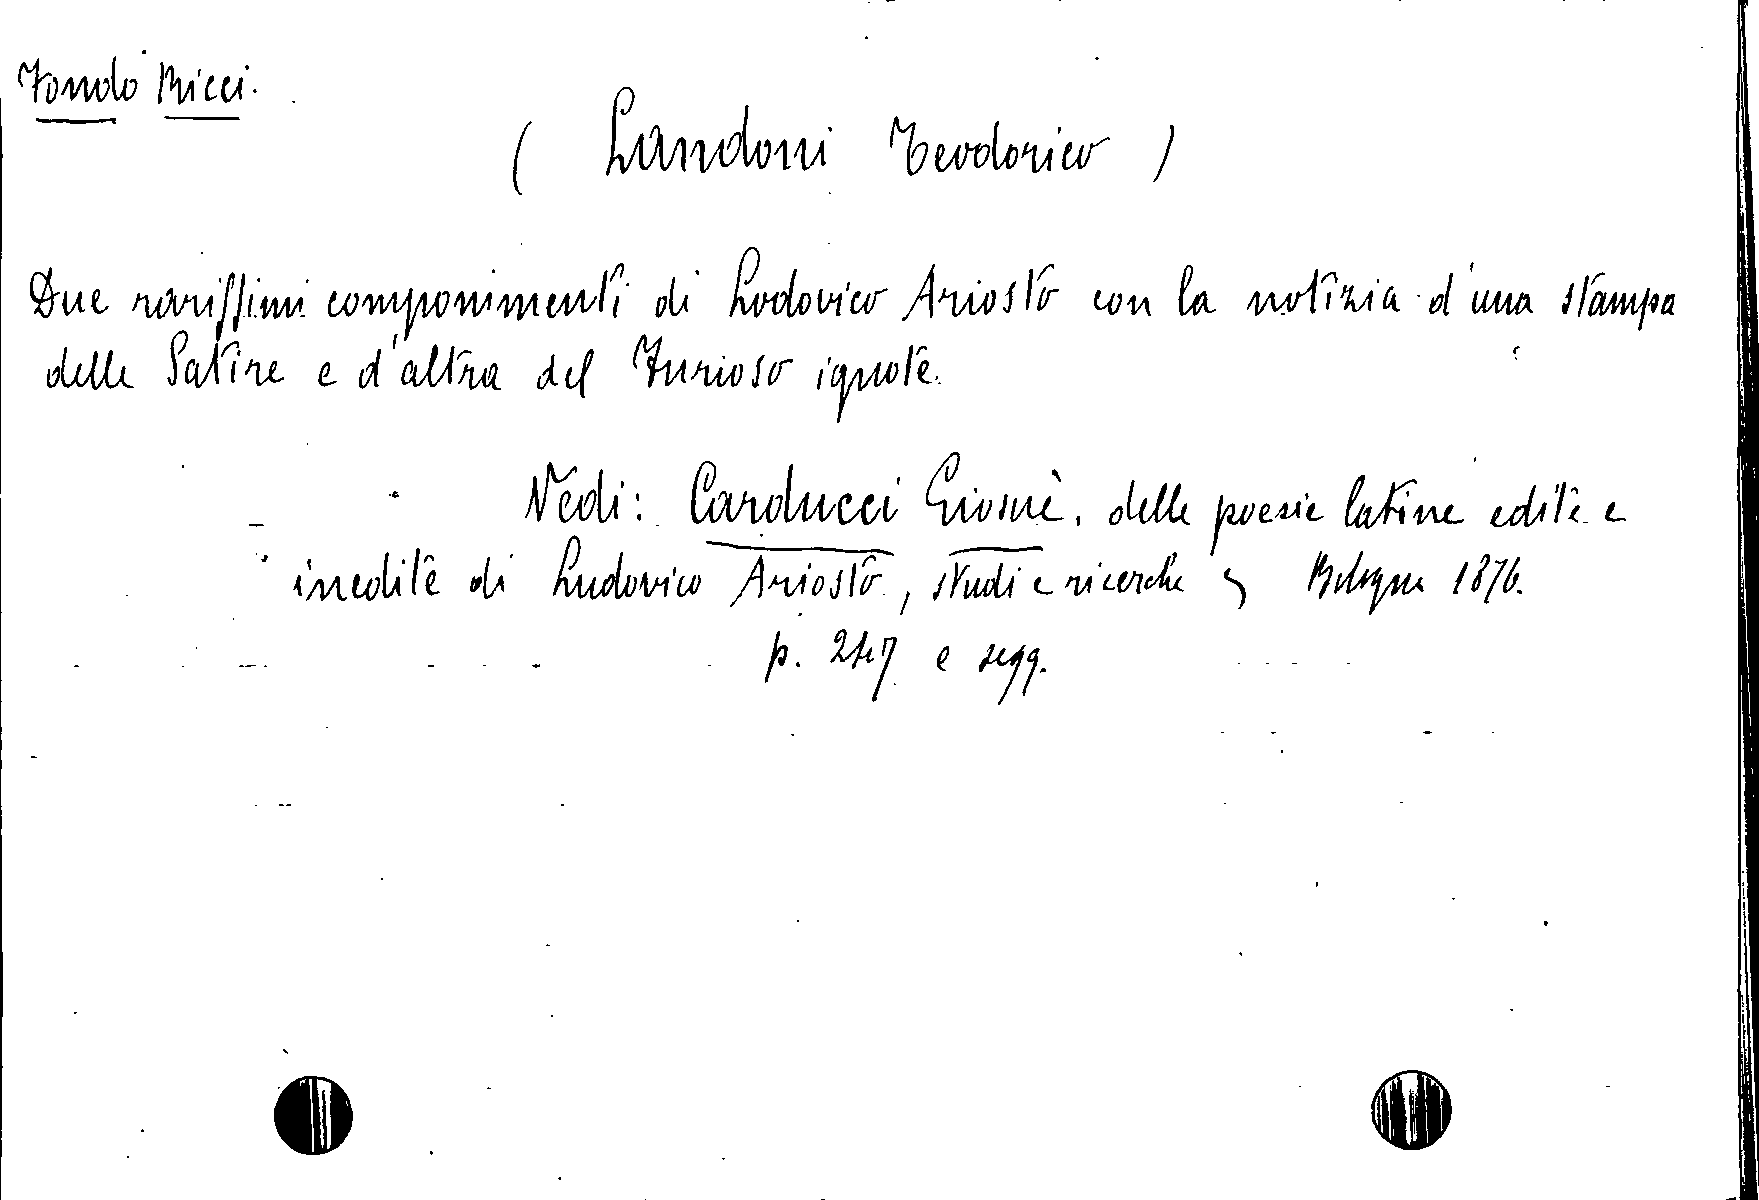 Fondo Ricci.
( Landoni Teodorico )
Due rarissimi componimenti di Lodovico Ariosto con la notizia d'una stampa
delle Satire e d'altra del Furioso ignote.
Vedi: Carducci Giosuè, delle poesie latine edite e
inedite di Ludovico Ariosto, studi e ricerche, Bologna 1876.
p. 247 e segg.